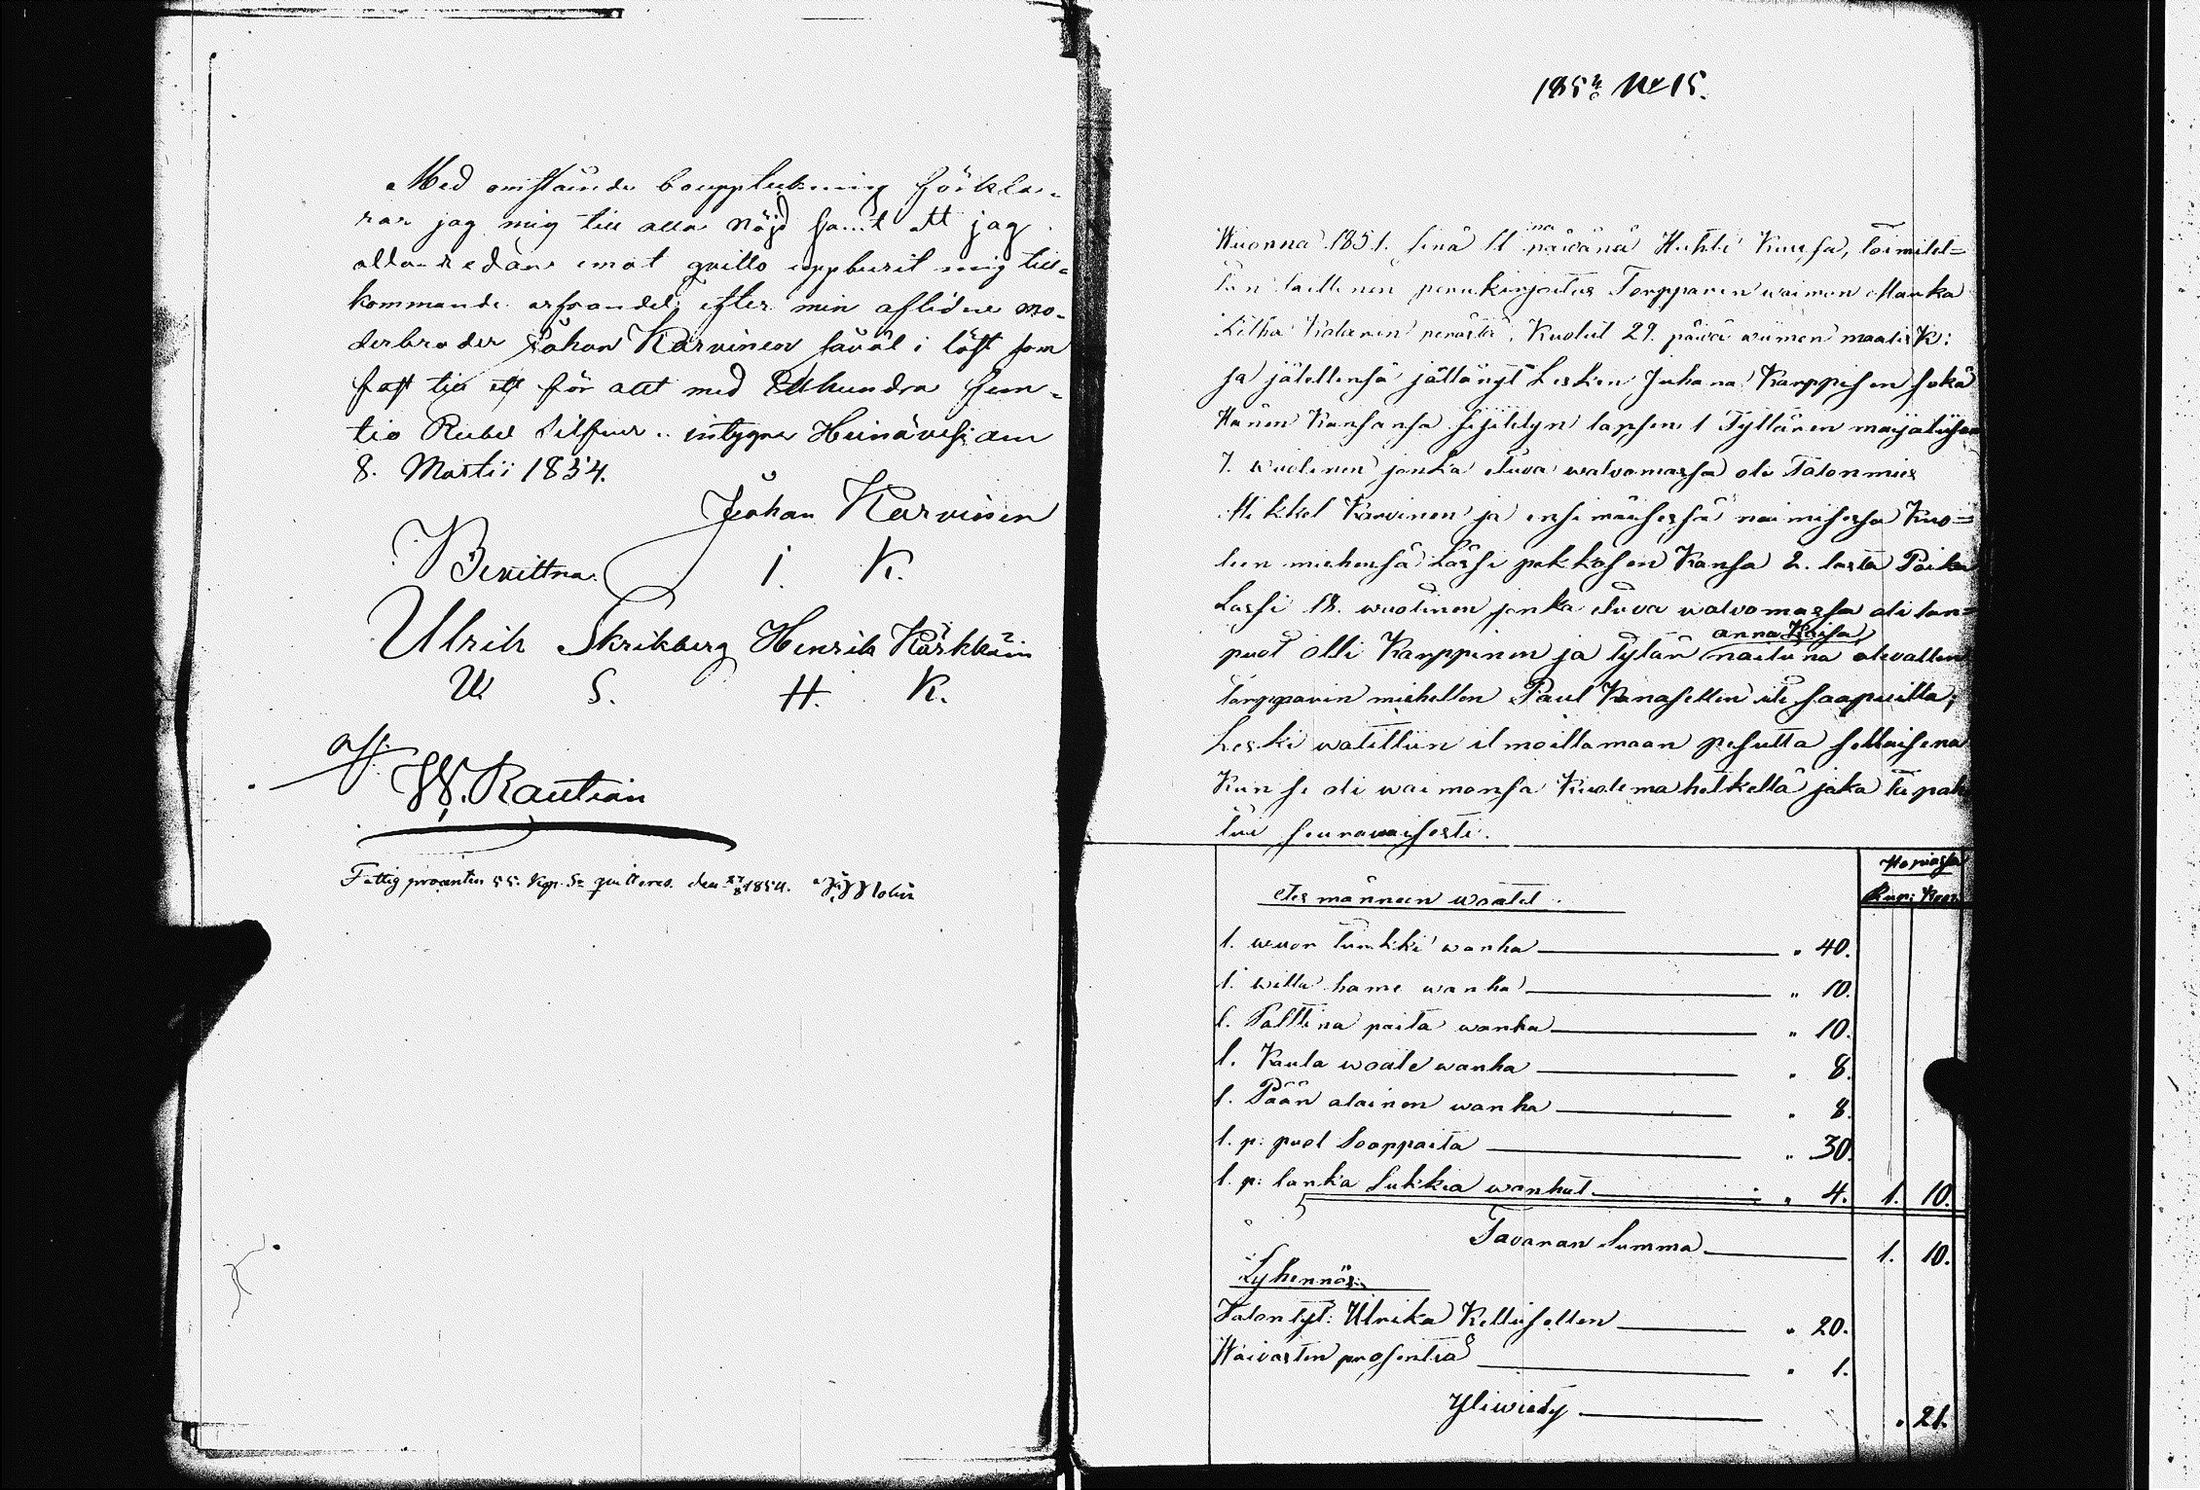 Med omstående boupptekning förkla-
rar jag mig till alla nöjd samt att jag
allaredan emot qvitto uppburit mig till-
kommande arfvandel efter min aflidne mo-
derbroder Johan Karvinen såväl i löst som
fast till ett för allt med Etthundra fem-
tio Rubel Silfver .. intygar Heinävesi den
8. Martii 1854.
Johan Karvinen
Bevittna. I. K.
Ulrik Skrikberg Henrik Kärkkäin
U. S. H. K.
W. Rautian
Fattig procenten 55. Kop. Sr qvitteras. den 1854.
No 15.
Wuonna 1851. sinä 11 na päivänä Huhti Kuussa, toimitet-
tin laillinen perukirjoitus Torpparin waimon
perästä, Kuollut 29. päivä wiimen maalis K:
ja jälellensä jättänyt Lesken Juhana Karppisen sekä
Hänen Kansansa sijitetyn lapsen 1 Tyttären
7. wuotinen jonka etuva walvomassa oli Talonmies
Mikkel Karvinen ja ensimäisessä naimisessa Kuo-
leen miehensä Lassi pakkasen Kansa 2. lasta Poika
Lassi 18. wuotinen jonka etuva walvomassa oli lan-
puol Olli Karppinen ja tytär anna Kaisa naituna olevallen
torpparin miehellen Paul Kanasellen iti saapuilla;
Leski watittiin ilmoittamaan pesutta sellaisena
Kun se oli waimonsa Kuolema hetkellä joka
tui seuravaisesti.
Hopiassa
Rup: Kop:
etes männeen waatet.
1. wuor turkki wanha " 40.
1. willa hame wanha " 10.
1. Palttina paita wanha " 10.
1. Kaula waate wanha " 8.
1. Pään alainen wanha " 8.
1. p: puol Saappaita " 30.
1. p: lanka Sukkia wanhat " 4. 1. 10.
Tavaran Summa 1. 10.
Lyhennös:
Talon tyt: Ulrika Kettusellen " 20.
Waivasten prosentia " 1.
Yliwiety " 21.